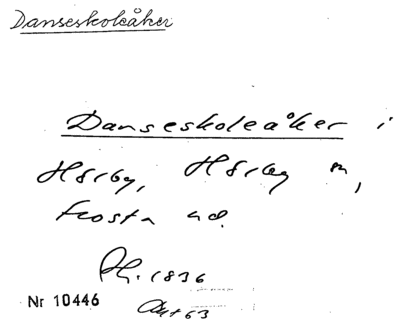 Danseskoleåker
Danseskoleåker i
Hörby, Hörby sn,
Frosta hd.
Ph. 1836
Nr 10446
Akt 63